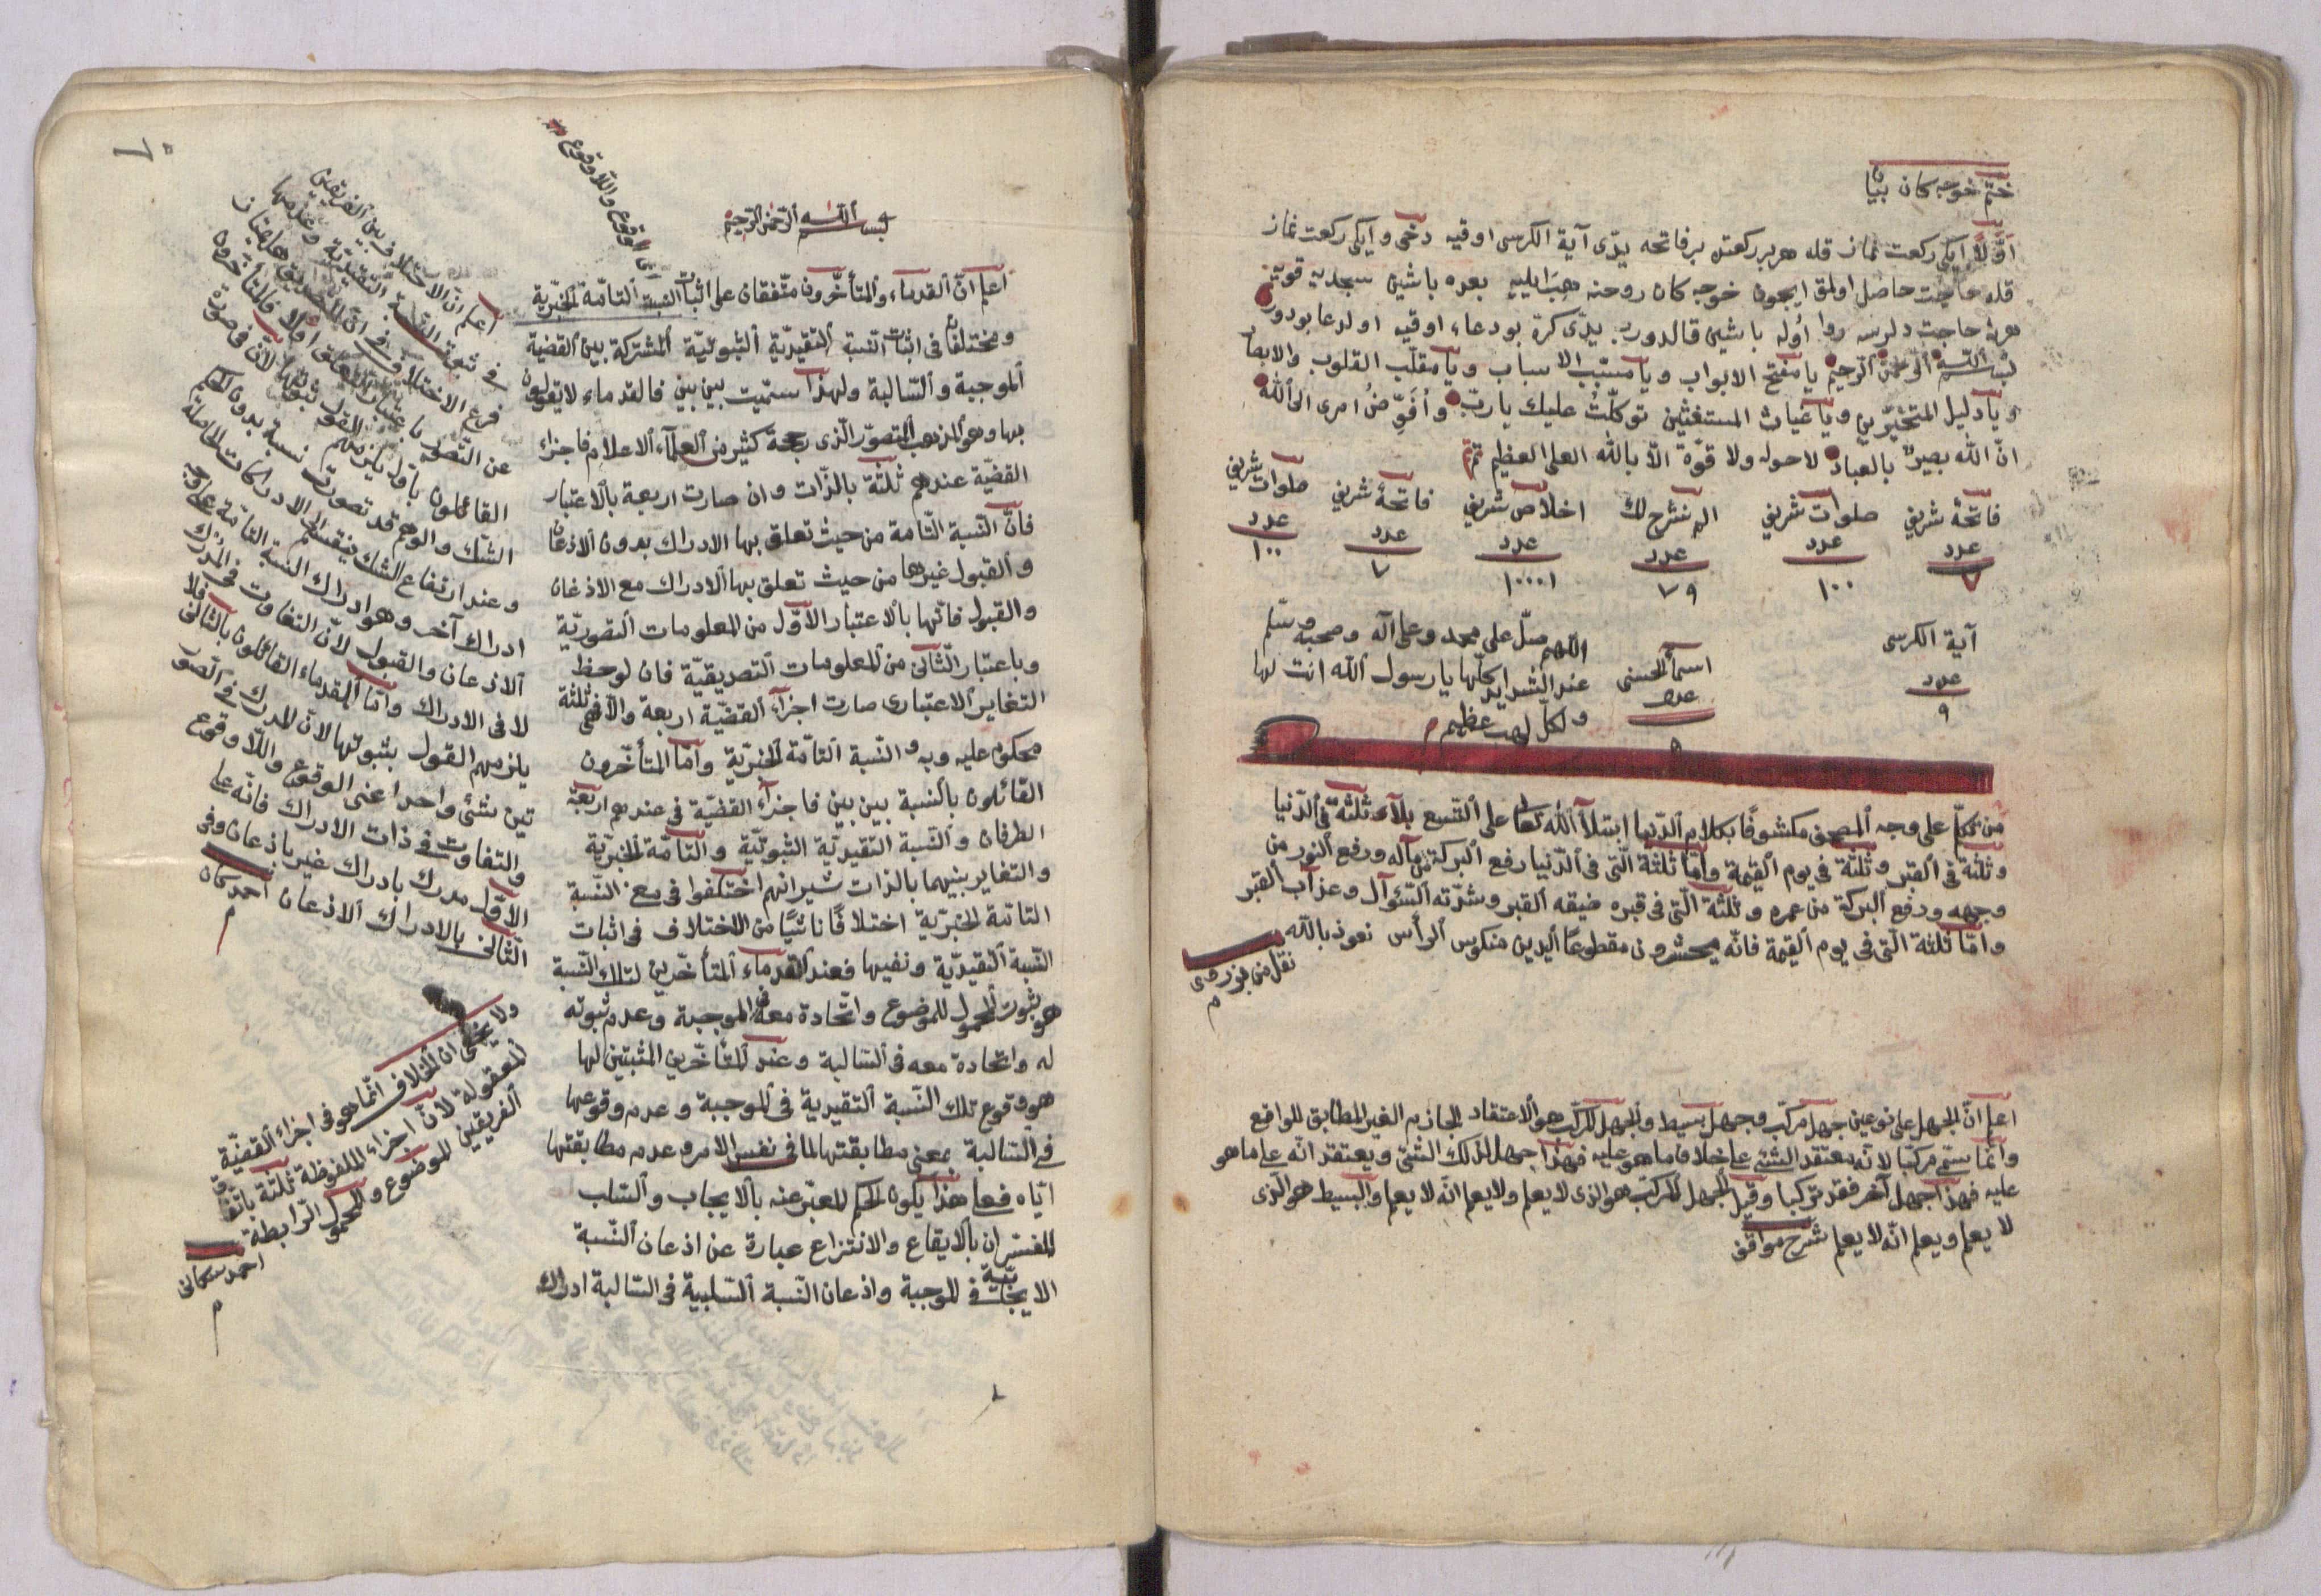 ختم خوجه كان بيان
اوّلاً ايكى ركعت نماز قله هر بر ركعتده بر فاتحه يدّى آية الكرسى اوقيه دخى و ايكى ركعت نماز
قله حاجت حاصل اولمق ايچون خوجه كان روحنه هبه ايليه بعده باشين سجديه قويه
هرنه حاجت دلرسه روا اوله باشين قالدوره يدّى كرّه بو دعاء اوقيه اولدعا بودور
بسم الله الرّحمن الرّحيم يا مفتّح الابواب ويا مسبّب الاسباب ويا مقلّب القلوب والابصار
ويا دليل المتحيّرين ويا غياث المستغثين توكّلتُ عليك يا ربّ وأفوّضُ امرى الى الله
انّ الله بصيرٌ بالعباد لاحول ولا قوّة الّا بالله العلى العظيم تم
فاتحهٔ شريف عدد ٧
صلوات شريف عدد ١٠٠
الم نشرح لك عدد ٧٩
اخلاص شريف عدد ١٠٠٠١
فاتحهٔ شريف عدد ٧
صلوات شريف عدد ١٠٠
آية الكرسى عدد ٩
اسمآ الحسنى عدد
اللهم صلّ على محمد وعلى آله وصحبه وسلم
عند الشدايد كلّها يا رسول الله انت لها
و لكلّ عظيم م
من تكلّم على وجه المصحف مكشوفًا بكلام الدّنيا ابتلآ الله تعا على التّسع بلآء ثلثة فى الدّنيا
وثلثة فى القبر وثلثة فى يوم القيمة وامّا ثلثة الّتى فى الدّنيا رفع البركة من مآله ورفع النور من
وجهه ورفع البركة من عمره وثلثة الّتى فى قبره ضيقه القبر وشدّته السّئوآل وعذآب القبر
وامّا ثلثة الّتى فى يوم القيمة فانّه يحشرون مقطوعًا اليدين منكوس الرأس نعوذ بالله
نقل من بزدوى
م
اعلم انّ الجهل على نوعين جهل مركّب وجهل بسيط والجهل المركّب هو الاعتقاد الجازم الغير المطابق للواقع
وانّما سمّى مركّبا لانّه معتقد الشئ على خلاف ما هو عليه فهذا جهل لذلك الشئ ويعتقد انّه على ما هو
عليه فهذا جهل آخر فقد تركبا وقيل الجهل المركّب هو الذى لا يعلم ولا يعلم انّه لا يعلم والبسيط هو الذى
لا يعلم ويعلم انّه لا يعلم شرح مواقف
بسم الله الرّحمن الرّحيم
اعلم انّ القدماء والمتأخّرون متّفقان على اثبات النسبة التامّة الخبريّة
ومختلفان فى اثبات النّسبة التّقيديّة الثبوتيّة المشتركة بين القضية
الموجبة والسّالبة ولهذا سمّيت بين بين فالقدماء لا يقولون
بها وهو المذهب المنصور الّذى رجّحه كثير من العلمآء الاعلام فاجزاء
القضيّة عندهم ثلثة بالذّات وان صارت اربعة بالاعتبار
فانّ النّسبة التّامة من حيث تعلق بها الادراك بدون الاذعان
والقبول غيرها من حيث تعلق بها الادراك مع الاذعان
والقبول فانّها بالاعتبار الاوّل من المعلومات التصوريّة
وباعتبار الثّانى من المعلومات التصديقيّة فان لوحظ
التغاير الاعتبارى صارت اجزآء القضيّة اربعة والّا فهى ثلثة
محكوم عليه وبه والنّسبة التامّة الخبريّة وامّا المتأخّرون
القائلون بالنسبة بين بين فاجزآء القضيّة فى عندهم اربعة
الطرفان والنّسبة التقيديّة الثبوتيّة والتامّة الخبريّة
والتغاير بينهما بالذات ثمّ انهم اختلفوا فى معنى النّسبة
التامّة الخبريّة اختلافًا ناشيًا من الاختلاف فى اثبات
النّسبة التّقيديّة ونفيها فعند القدماء المتأخّرين لتلك النّسبة
هو ثبوت المحمول للموضوع واتّحاده معه فى الموجبة وعدم ثبوته
له واتحاده معه فى السّالبة وعند المتأخّرين المثبتين لها
هو وقوع تلك النّسبة التقيدية فى الموجبة وعدم وقوعها
فى السّالبة بمعنى مطابقتها لما فى نفس الامر وعدم مطابقتها
ايّاه فعلى هذا يكون الحكم المعبّر عنه بالايجاب والسّلب
المفسّران بالايقاع والانتزاع عبارة عن اذعان النّسبة
الايجابيّة فى الموجبة واذعان النّسبة السّلبية فى السّالبة ادراك
اى الوقوع واللّا وقوع منه
اعلم انّ الاختلاف بين الفريقين
فى ثبوت النّسبة التقيديّة وعدمها
فرع الاختلاف فى انّ التّصديق هل
عن التّصور باعتبار المتعلق اولا فالمتأخّرون
القائلون بأوّل يلزمهم القول بثبوتها لانّ فى صورة
الشّك والوهم قد تصورت نسبة بدون الحكم
وعند ارتفاع الشك ينقسم الى الادراكات الحاصلة
ادراك آخر وهو ادراك النسبة التامّة على وجه
الاذعان والقبول لانّ التفاوت فى المدرك
لا فى الادراك وامّا القدماء القائلون بالثّانى فلا
يلزمهم القول بثبوتها لانّ المدرك فى التصور
تين شئ واحد اعنى الوقوع واللّا وقوع
والتفاوت فى ذات الادراك فانّه على
الاوّل مدرك بادراك غير باذعان وفى
الثّانى بالادراك الاذعان احمد كان
م
ولا يخفى انّ الخلاف انّما هو فى اجزاء القضيّة
المعقولة لانّ اجزاء الملفوظة ثلثة باتّفاق
الفريقين الموضوع والمحمول الرّابطة
احمد سكانى
م